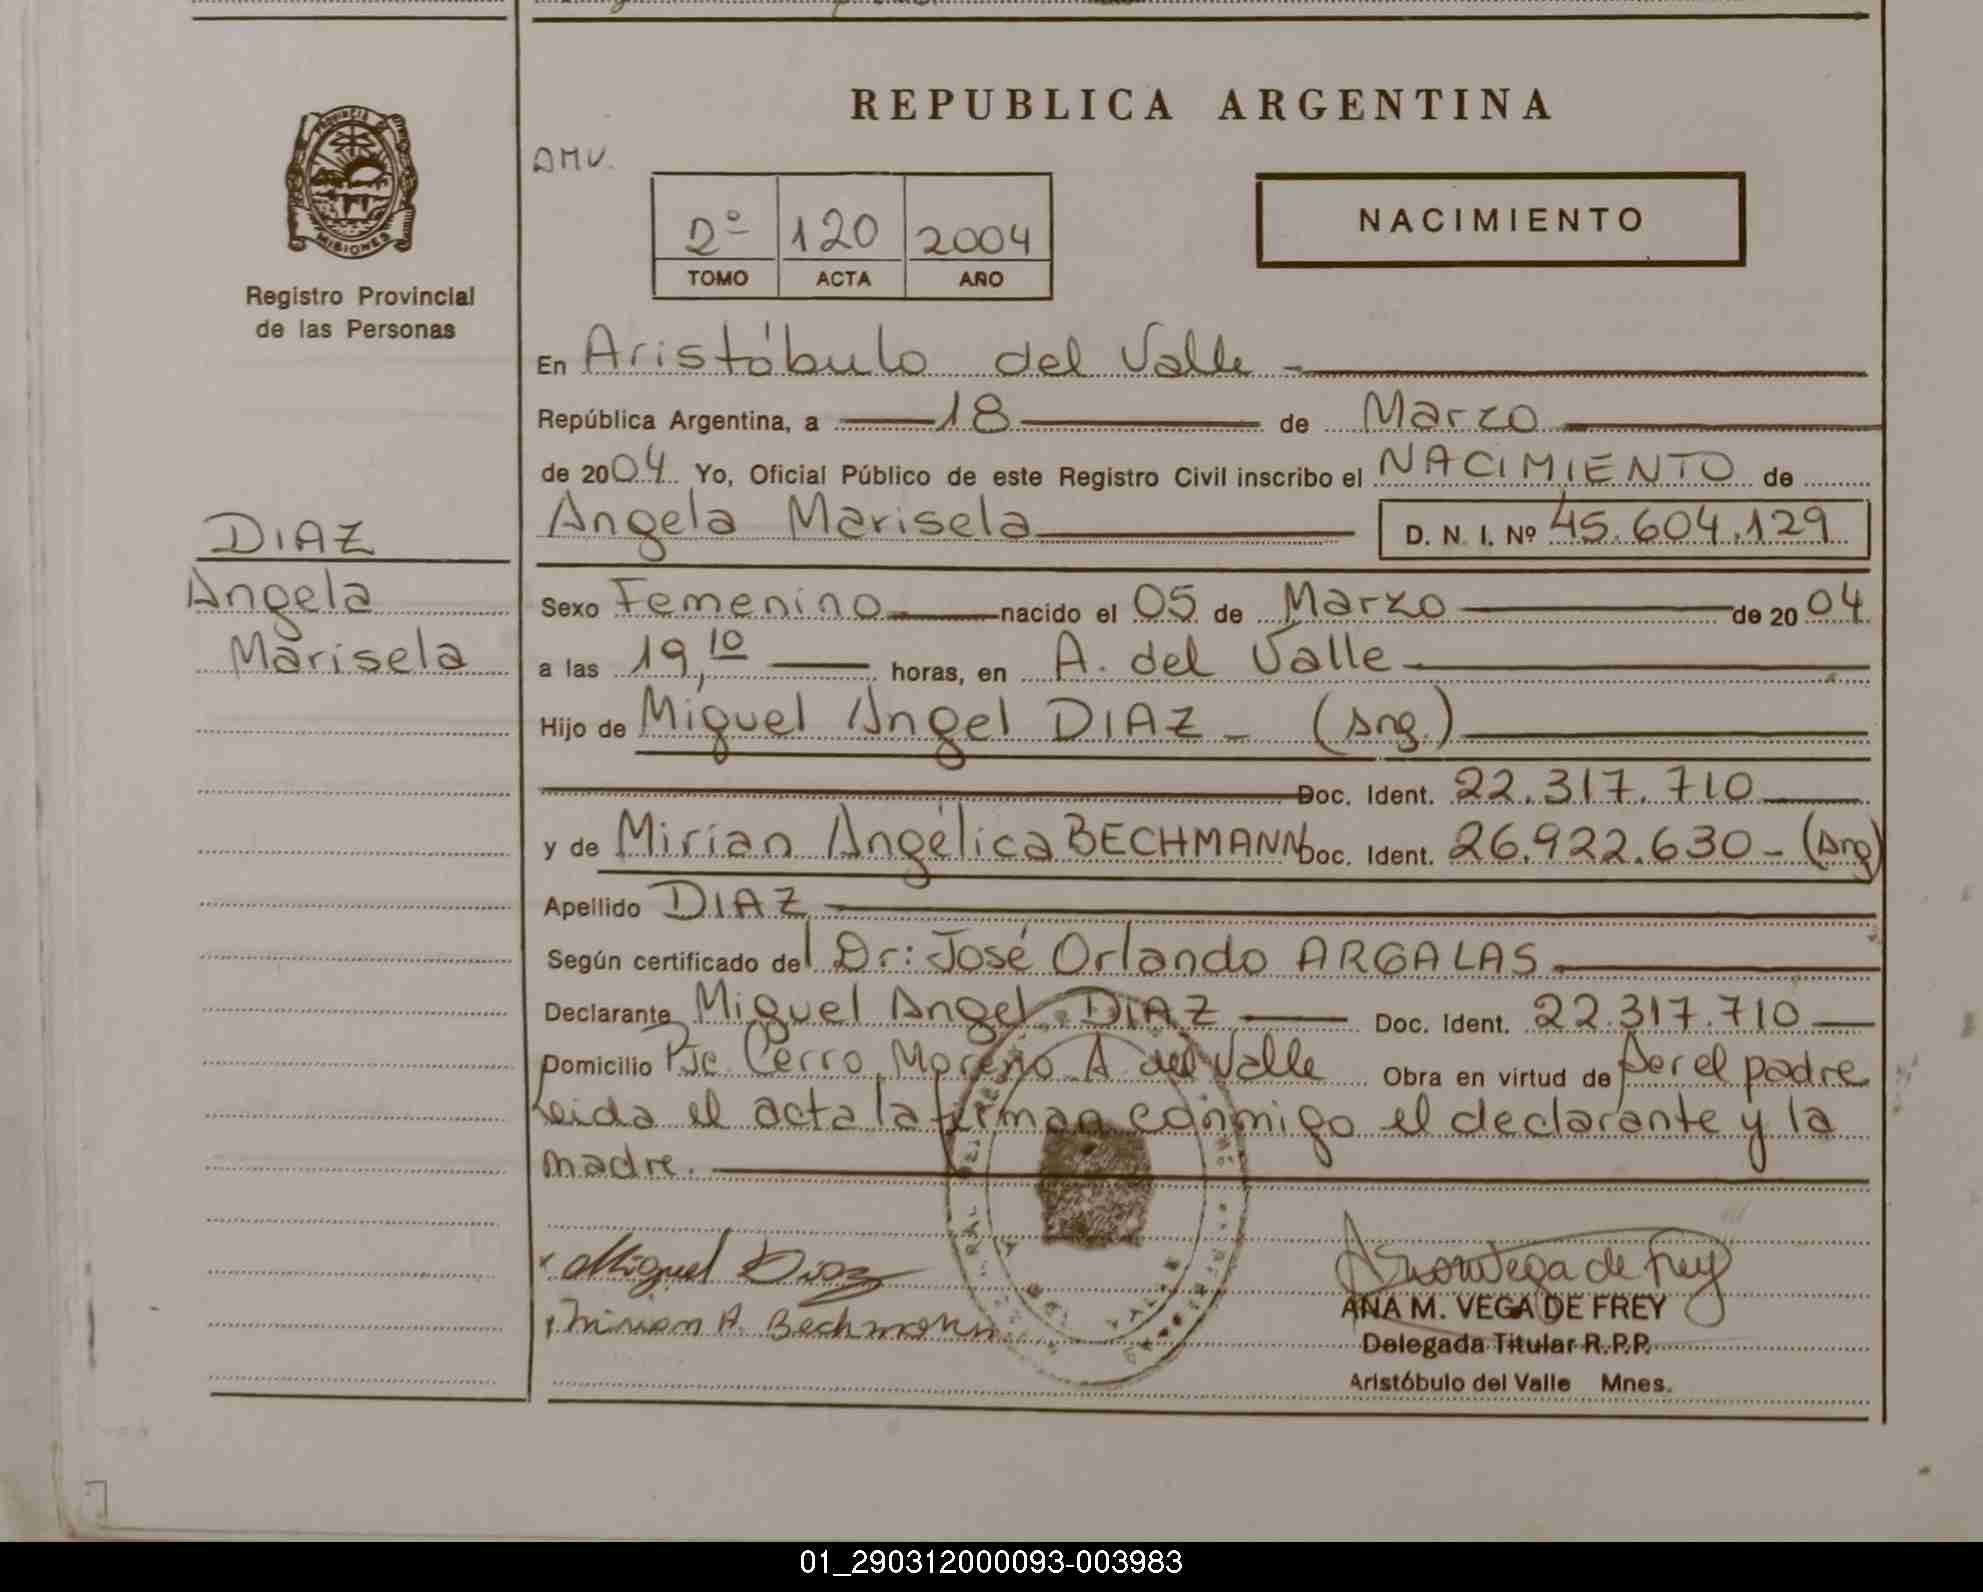 REPUBLICA ARGENTINA
PROVINCIA DE
MISIONES
Registro Provincial
de las Personas
AMV.
2º 120 2004
TOMO ACTA AÑO
NACIMIENTO
En Aristóbulo del Valle -
República Argentina, a 18 de Marzo
de 2004 Yo, Oficial Público de este Registro Civil inscribo el NACIMIENTO de
Angela Marisela D. N. I. Nº 45.604.129
DIAZ
Angela
Marisela
Sexo Femenino nacido el 05 de Marzo de 2004
a las 19,10 horas, en A. del Valle
Hijo de Miguel Angel DIAZ - (Arg.)
Doc. Ident. 22.317.710
y de Mirian Angélica BECHMANN Doc. Ident. 26.922.630 - (Arg)
Apellido DIAZ
Según certificado del Dr: José Orlando ARGALAS
Declarante Miguel Angel DIAZ Doc. Ident. 22.317.710
Domicilio Pje. Cerro Moreno A. del Valle Obra en virtud de ser el padre
Leida el acta la firman conmigo el declarante y la
madre.
Miguel Diaz
Mirian A. Bechmann
Ana M Vega de Frey
ANA M. VEGA DE FREY
Delegada Titular R.P.P.
Aristóbulo del Valle Mnes.
01_290312000093-003983